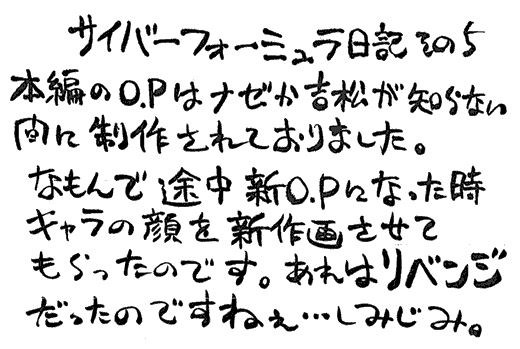 サイバーフォーミュラ日記その5
本編のO.Pはナゼか吉松が知らない
間に制作されておりました。
なもんで途中新O.Pになった時
キャラの顔を新作画させて
もらったのです。あれはリベンジ
だったのですねぇ…しみじみ。